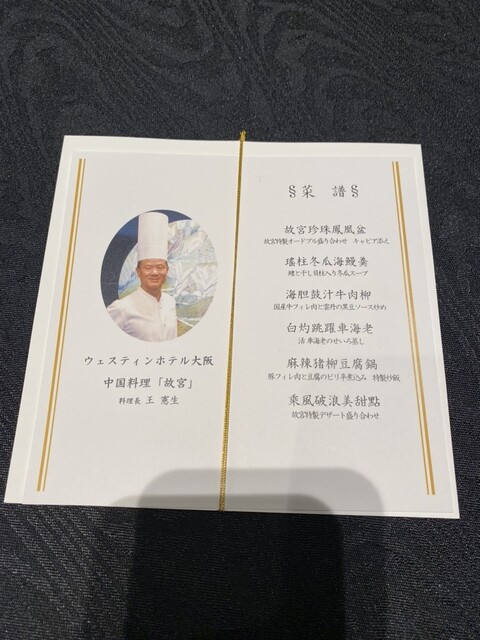 ウェスティンホテル大阪
中国料理「故宮」
料理長 王 憲生
§菜 譜§
故宮珍珠鳳凰盆
故宮特製オードブル盛り合わせ キャビア添え
瑤柱冬瓜海鰻羹
鱧と干し貝柱入り冬瓜スープ
海胆鼓汁牛肉柳
国産牛フィレ肉と雲丹の黒豆ソース炒め
白灼跳躍車海老
活車海老のせいろ蒸し
麻辣猪柳豆腐鍋
豚フィレ肉と豆腐のピリ辛煮込み 特製炒飯
乘風破浪美甜點
故宮特製デザート盛り合わせ